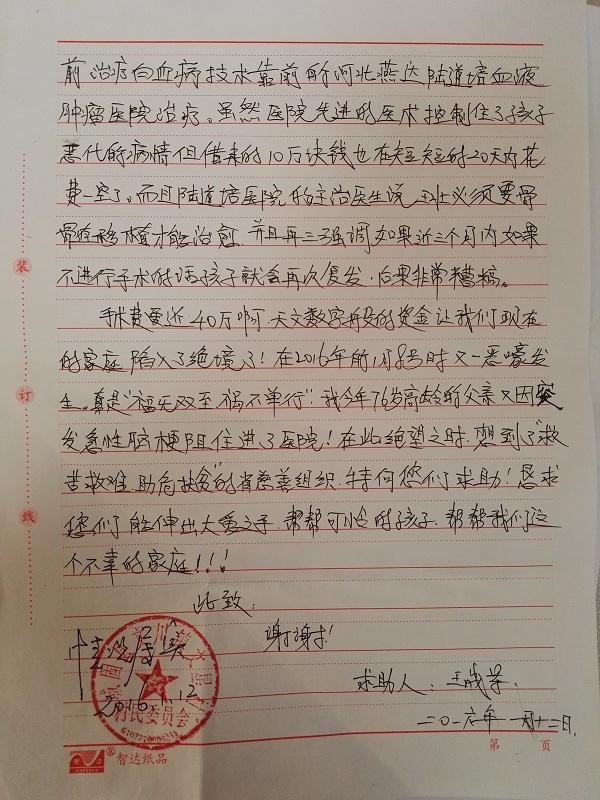 前治疗白血病技术靠前的河北燕达陆道培血液
肿瘤医院治疗。虽然医院先进的医术控制住了孩子
恶化的病情但借来的10万块钱也在短短的20天内花
费一空了。而且陆道培医院的主治医生说王壮必须要骨
骨髓移植才能治愈.并且再三强调如果近三个月内如果
不进行手术的话孩子就会再次复发.后果非常糟糕。
手术费要近40万啊.天文数字般的资金让我们现在
的家庭陷入了绝境了!在2016年的1月8号时又一恶嚎发
生.真是"福无双至.祸不单行".我今年76岁高龄的父亲又因突
发急性脑梗阻住进了医院!在此绝望之时.想到了"救
苦救难.助危扶贫"的省慈善组织.特向您们求助!恳求
您们能伸出大爱之手.帮帮可怜的孩子.帮帮我们这
个不幸的家庭!!!
此致:
谢谢!
情况属实
2016.1.12
村民委员会
求助人:
二〇一六年一月十二日.
装
订
线
第 页
智达纸品